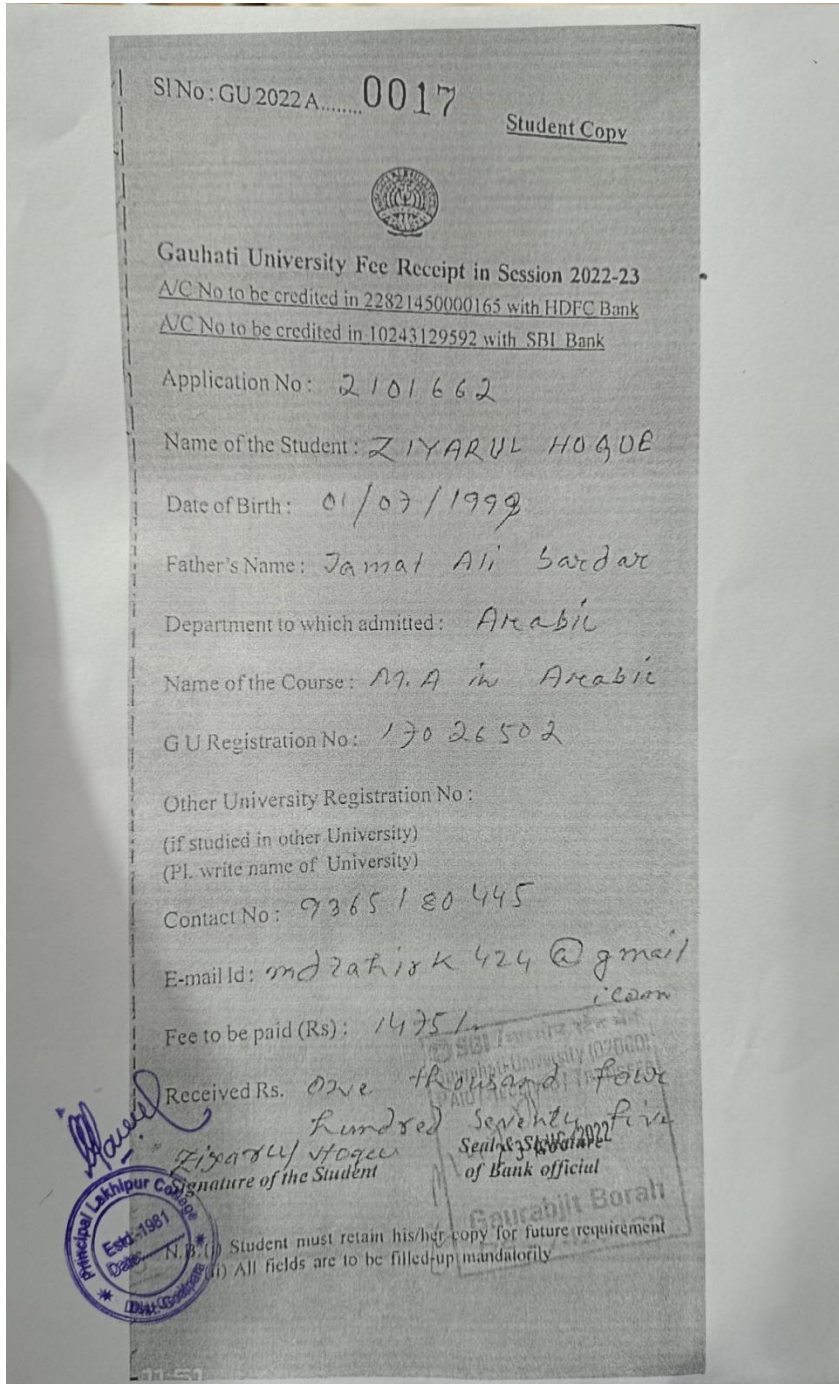 Sl No : GU 2022 A........ 0017
Student Copy
Gauhati University Fee Receipt in Session 2022-23
A/C No to be credited in 22821450000165 with HDFC Bank
A/C No to be credited in 10243129592 with SBI Bank
Application No : 2101662
Name of the Student : ZIYARUL HOQUE
Date of Birth : 01/07/1999
Father's Name : Jamat Ali Sardar
Department to which admitted : Arabic
Name of the Course : M.A in Arabic
G U Registration No : 17026502
Other University Registration No :
(if studied in other University)
(Pl. write name of University)
Contact No : 9365180445
E-mail Id : mdzahirk424@gmail
.com
Fee to be paid (Rs) : 1475/-
SBI
Received Rs. One thousand four
hundred seventy five
Ziyarul Hoque
Signature of the Student
Seal & Signature
of Bank official
Gaurabjit Borah
N.B. (i) Student must retain his/her copy for future requirement
(ii) All fields are to be filled-up mandatorily
Principal Lakhipur College
Estd.-1981
Date
Dist. Goalpara
11:51